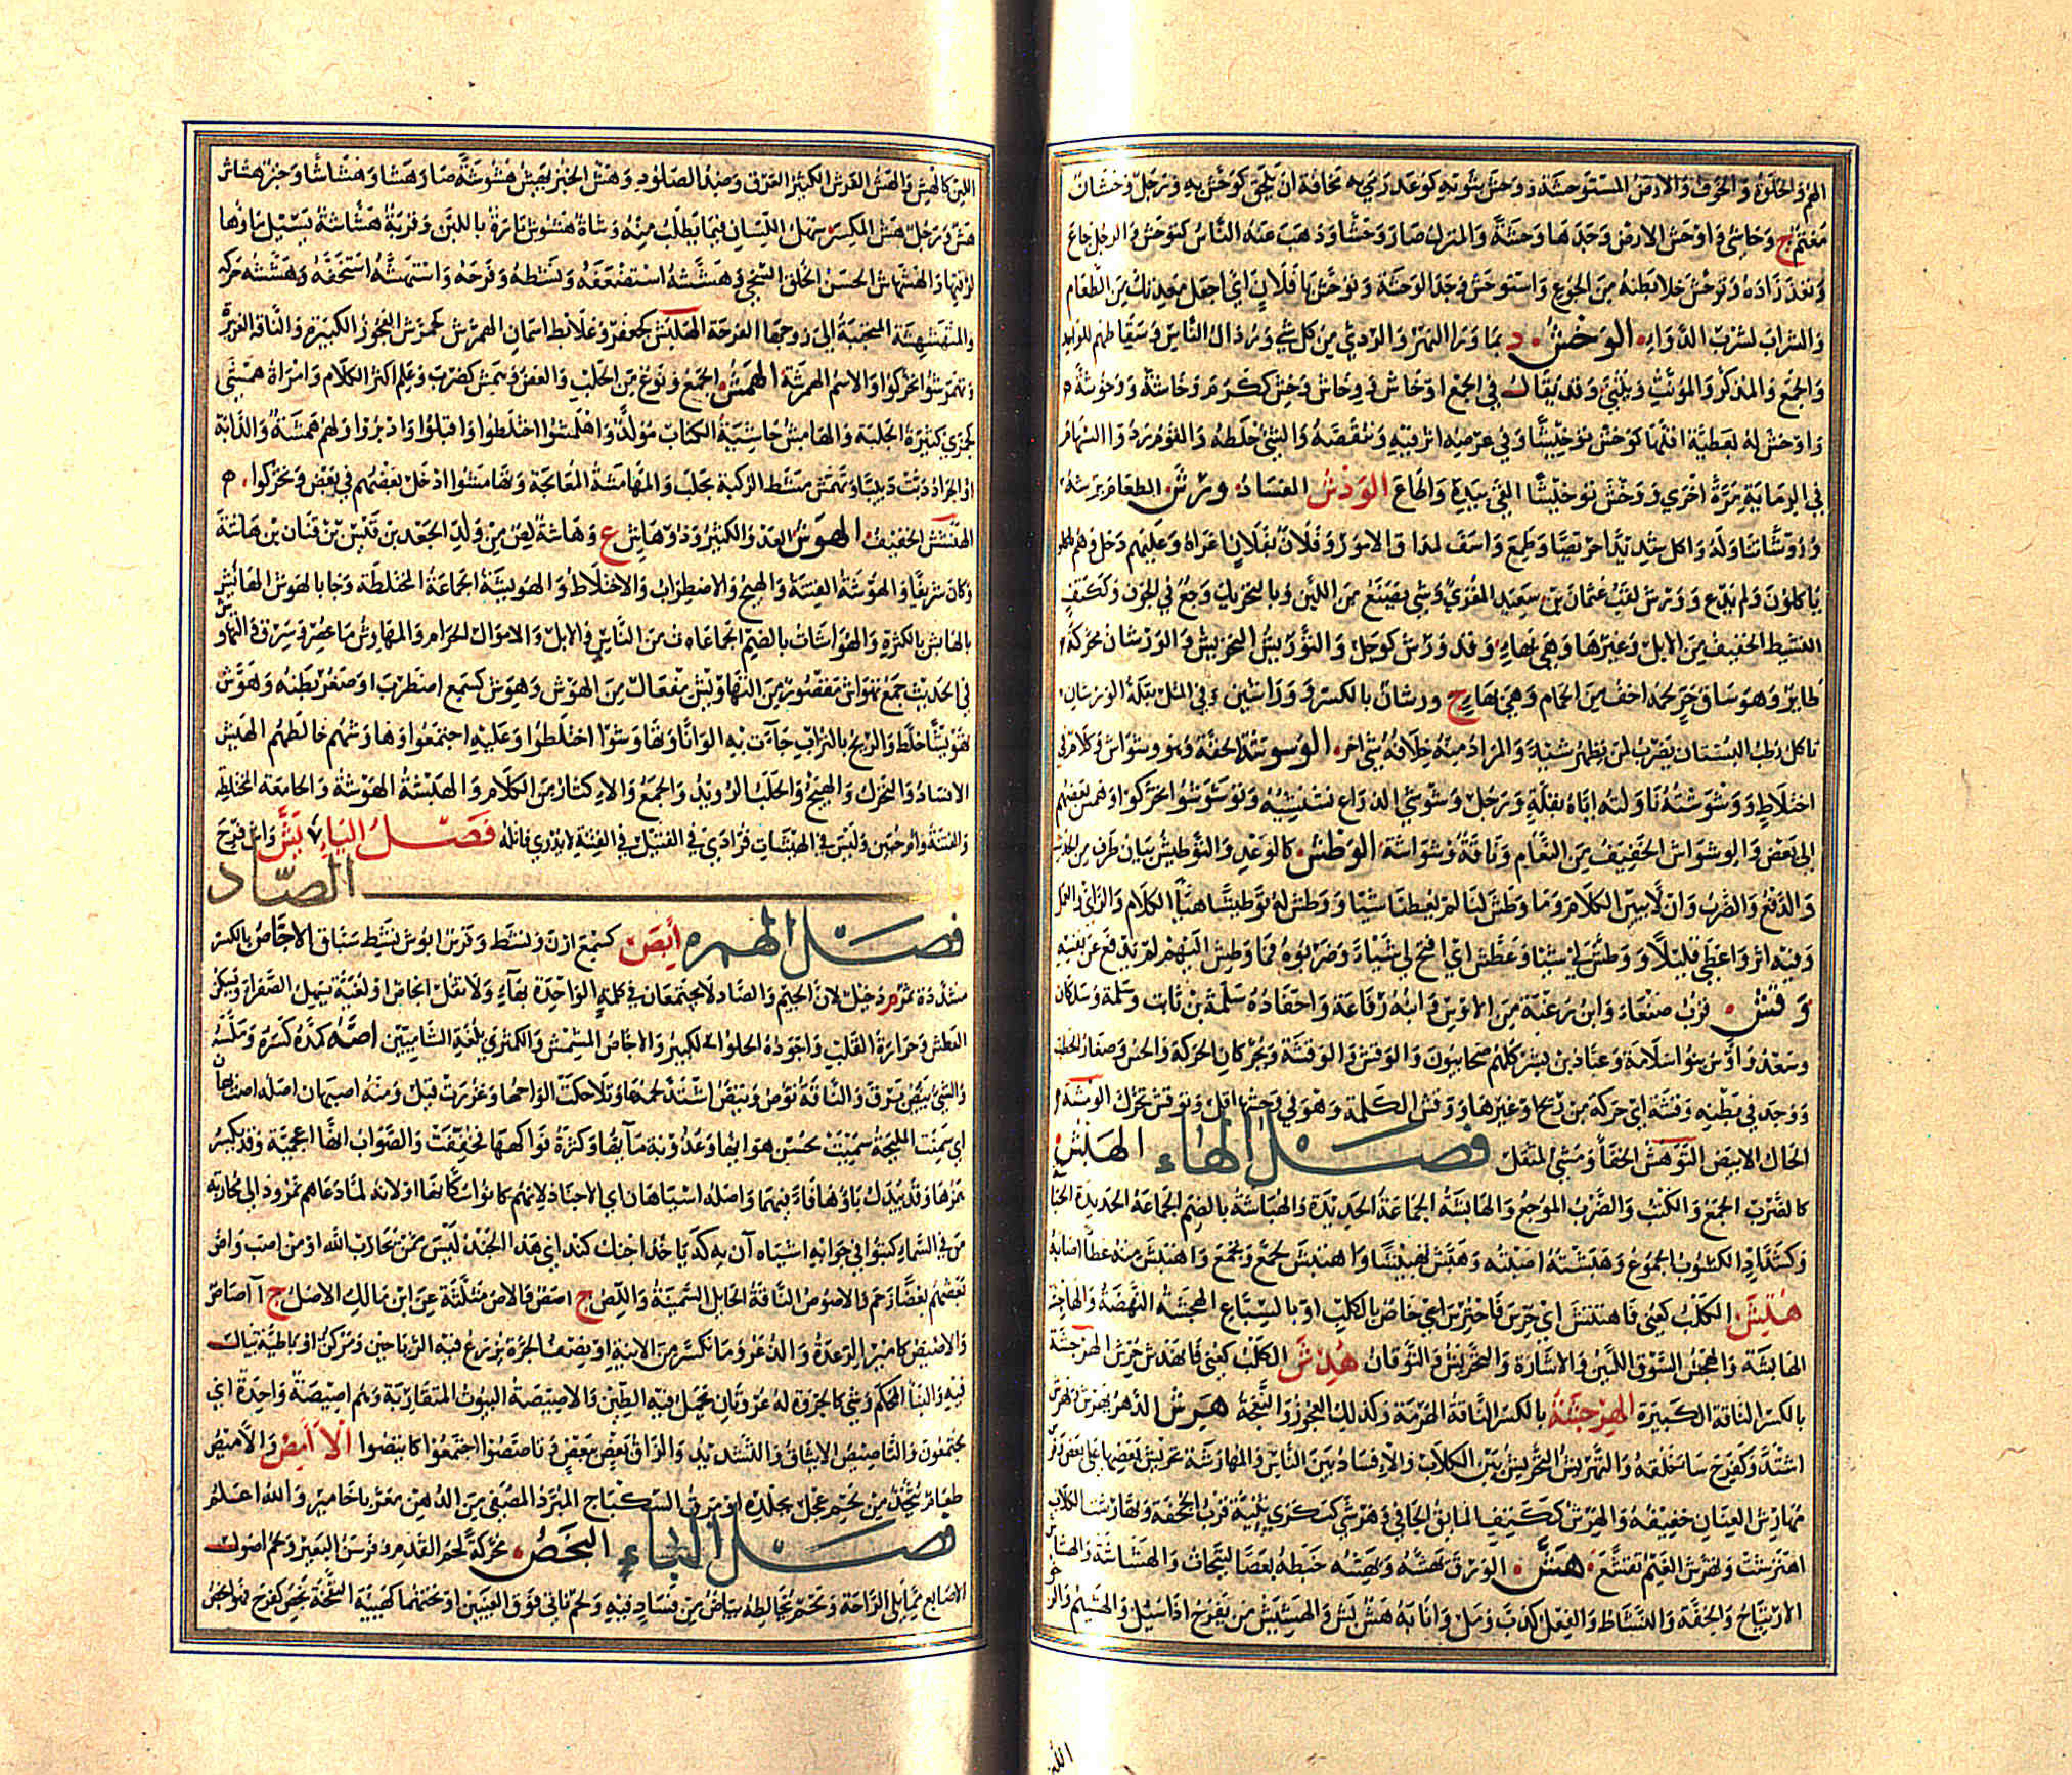 الهم والخلوة والخوف والارض المستوحشة ووحش بثوبه كوعد رمى به مخافة ان يلحق كوحش به ورجل وحشان
مغتم ج وحاشى واوحش الارض وجدها وحشة والمنزل صار وحشا وذهب عنه الناس كتوحش والرجل جاع
ونفد زاده وتوحش خلا بطنه من الجوع واستوحش وجد الوحشة وتوحش يا فلان اى اجعل معدتك من الطعام
والشراب لشرب الدواء الوخش د بما وراء النهر والردئ من كل شئ ورذال الناس وسقاطهم للواحد
والجمع والمذكر والمؤنث ويثنى وقد يقال في الجمع اوخاش ووخاش ووخش ككرم وخاشة ووخوشة
واوخش له بعطية اقلها كوخش توخيشا وفي عرضه اثر فيه وتنقصه والشئ خلطه والقوم ردوا السهام
في الرماية مرة اخرى ووخش توخيشا القى بيده واطاع الوذش الفساد ورش الطعام
وروشا تناوله واكل شديدا حريصا وطمع واسف لمداق الامور وفلان بفلان اغراه وعليهم دخل وهم
ياكلون ولم يدع وورش لقب عثمان بن سعيد المقرئ وشئ يصنع من اللبن وبالتحريك وجع في الجوف وككتف
النشيط الخفيف من الابل وغيرها وهى بهاء وقد ورش كوجل والتوريش التحريش والورشان محركة
طاير وهو ساق حر لحمه اخف من الحمام وهى بهاء ج ورشان بالكسر ووراشين وفي المثل بعلة الورشان
تاكل رطب المشان يضرب لمن يظهر شيئا والمراد منه خلافه شئ اخر الوشوشة الخفة وهو وشواش وكلام في
اختلاط ووشوشته ناولته اياه بقلة ورجل وشوشى الذراع نشنشيه وتوشوشوا تحركوا وهمس بعضهم
الى بعض والوشواش الخفيف من النعام وناقة وشواشة الوطش كالوعد والتوطيش بيان طرف من الحديث
والدفع والضرب وان لا يبين الكلام وما وطش لنا لم يعطنا شيئا ووطش له توطيشا هيأ الكلام والراى والعمل
وفيه اثر واعطى قليلا ووطش لى شيئا وغطش اى افتح لى شيئا وضربوه فما وطش اليهم لم يدفع عن نفسه
وقش قرب صنعاء وابن زغبة من الاوس وابنه رفاعة واحفاده سلمة بن ثابت وسلمة وسلكان
وسعد واوس بنو سلامة وعباد بن بشر كلهم صحابيون والوقش والوقشة ويحركان الحركة والحس وصغار الحطب
ووجد في بطنه وقشة اى حركة من ريح او غيرها ووقش الكلمة وهو في وحشها اقل وتوقش تحرك الومشة
الخال الابيض التوهش الحفا ومشى المثقل فصل الهاء الهبش
كالضرب الجمع والكسب والضرب الموجع والهابشة الجماعة الجديدة والهباشة بالضم الجماعة الجديدة الحبا
وكشداد الكسوب الجموع وهبشته اصبته وهبش تهبيشا واهتبش جمع وتجمع واهتبش منه عطا اصابه
هتش الكلب كعنى فاهتتش اى حرش فاحترش اى خاص بالكلب او بالسباع الهجشة النهضة والهاجشة
الهابشة والهجش السوق اللين والاشارة والتحريش والتوقان هدش الكلب كعنى فانهدش حرش الهرجشة
بالكسر الناقة الكبيرة الهرجشة بالكسر الناقة الهرمة وكذلك العجوز والنعجة هرش الدهر يهرش ويهرش
اشتد وكفرح ساء خلقه والتهريش التحريش بين الكلاب والافساد بين الناس والمهارشة تحريش بعضها على بعض وفرس
مهارش العنان خفيفه والهرش ككتف المائق الجافي وهرشى كسكرى ثنية قرب الجحفة وتهارشت الكلاب
اهترشت وتهرش الغيم تقشع هش الورق يهشه ويهشه خبطه بعصا ليتحات والهشاشة والهشاش
الارتياح والخفة والنشاط والفعل كدب ومل وانا به هش بش والهشيش من يفرح اذا سئل والهشيم والر
الله
اللين كالهش والهش الفرس الكثير العرق وضد الصلود وهش الخبز يهش هشوشة صار هشا وهشاشا وخبزة هشاش
هش ورجل هش المكسر سهل الشان فيما يطلب منه وشاة هشوش ثارة باللبن وقربة هشاشة يسيل ماؤها
لرقتها والهشهاش الحسن الخلق السخى وهششه استضعفه ونشطه وفرحه واستهشه استخفه وهشهشه حركه
والمتهشهشة المتحببة الى زوجها الفرحة الهلبش كجعفر وعلابط اسمان الهمرش كجحمرش العجوز الكبيرة والناقة الغزيرة
وتهمرشوا تحركوا والاسم الهمرشة الهمش الجمع ونوع من الحلب والعض وهمش كضرب وعلم اكثر الكلام وامراة همشى
كجمزى كثيرة الجلبة والهامش حاشية الكتاب مولد واهتمشوا اختلطوا واقبلوا وادبروا ولهم همشة والدابة
او الجراد دبت دبيبا وتهمش مشط الركبة تحلب والمهامشة المعالجة وتهامشوا دخل بعضهم في بعض وتحركوا
الهنش الخفيف الهوش العدد الكثير وذو هاش ع وهاشة لص من ولد الجعد بن قيس بن قنان بن هاشة
وكان شريفا والهوشة الفتنة والهيج والاضطراب والاختلاط والهويشة الجماعة المختلطة وجا بالهوش الهائش
بالهابش بالكثرة والهواشات بالضم الجماعات من الناس والابل والاموال الحرام والمهاوش ما غصب وسرق والتهاوش
في الحديث جمع تهواش مقصور من التهاويش تفعال من الهوش وهوش كسمع اضطرب او صغر بطنه وهوش
تهويشا خلط والريح بالتراب جاءت به الوانا وتهاوشوا اختلطوا وعليه اجتمعوا وهاوشهم خالطهم الهيش
الافساد والتحرك والهيج والحلب الرويد والجمع والاكثار من الكلام والهيشة الهوشة والجماعة المختلطة
والفتنة وام حبين وليس في الهيشات قود اى في القتيل في الفتنة لا يدرى قاتله فصل الياء يش واش فرح
باب الصاد
فصل الهمزه أبص كسمع ارن ونشط وفرس ابوص نشيط سباق الاجاص بالكسر
مشددة ثمر م دخيل لان الجيم والصاد لا يجتمعان في كلمة الواحدة بهاء ولا تقل انجاص او لغية يسهل الصفراء ويسكن
العطش وحرارة القلب واجوده الحلو الكبير والاجاص المشمش والكمثرى بلغة الشاميين اصه كمده كسره وملسه
والشئ يئص برق والناقة تؤص وتئص اشتد لحمها وتلاحكت الواحها وغزرت قيل ومنه اصبهان اصله اصت بهان
اى سمنت المليحة سميت لحسن هوائها وعذوبة مائها وكثرة فواكهها فخففت والصواب انها اعجمية وقد يكسر
همزها وقد يبدل باؤها فاء فيهما واصله اسباهان اى الاجناد لانهم كانوا سكانها او لانه لما دعاهم نمروذ الى محاربة
من في السماء كتبوا في جوابه اسپاه آن نه كه با خدا جنك كند اى هذا الجند ليس ممن يحارب الله او من اصب واص
بعضهم بعضا زحم والاصوص الناقة الحائل السمينة واللص ج اصص والاص مثلثة عن ابن مالك الاصل ج آصاص
والاصيص كامير الرعدة والذعر وما تكسر من الانية او نصف الجرة يزرع فيه الرياحين ومركن او باطية يبال
فيه والبناء المحكم وشئ كالجرة له عروتان يحمل فيه الطين والاصيصة البيوت المتقاربة وهم اصيصة واحدة اى
مجتمعون والتاصيص الايثاق والتشديد والزاق بعض ببعض وتاصصوا اجتمعوا كائتصوا الآمص والآميص
طعام يتخذ من لحم عجل بجلده او مرق السكباج المبرد المصفى من الدهن معرب خاميز والله اعلم
فصل الباء البخص محركة لحم القدم وفرسن البعير ولحم اصول
الاصابع مما يلى الراحة ولحم يخالطه بياض من فساد فيه ولحم ناتئ فوق العينين او تحتهما كهيئة النفخة بخص كفرح فهو ابخص